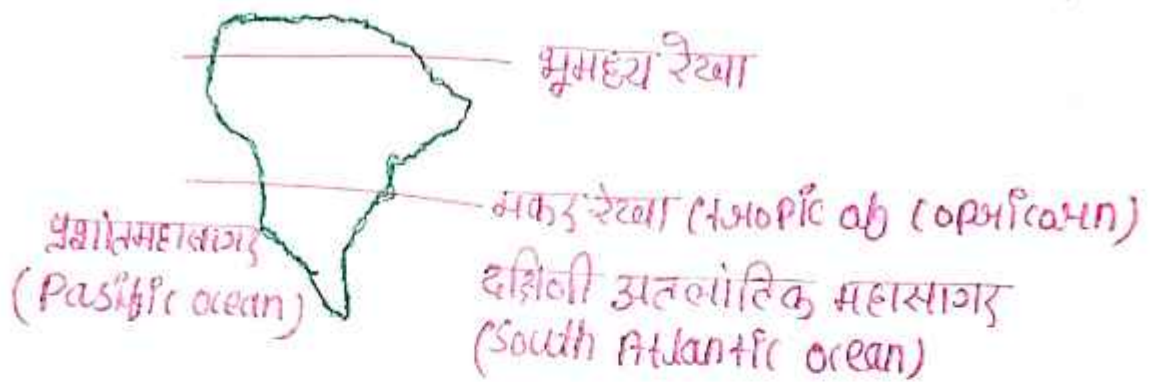 भूमध्य रेखा
मकर रेखा (tropic of Capricorn)
प्रशांतमहासागर
(Pasific ocean)
दक्षिणी अतलांतिक महासागर
(South Atlantic ocean)